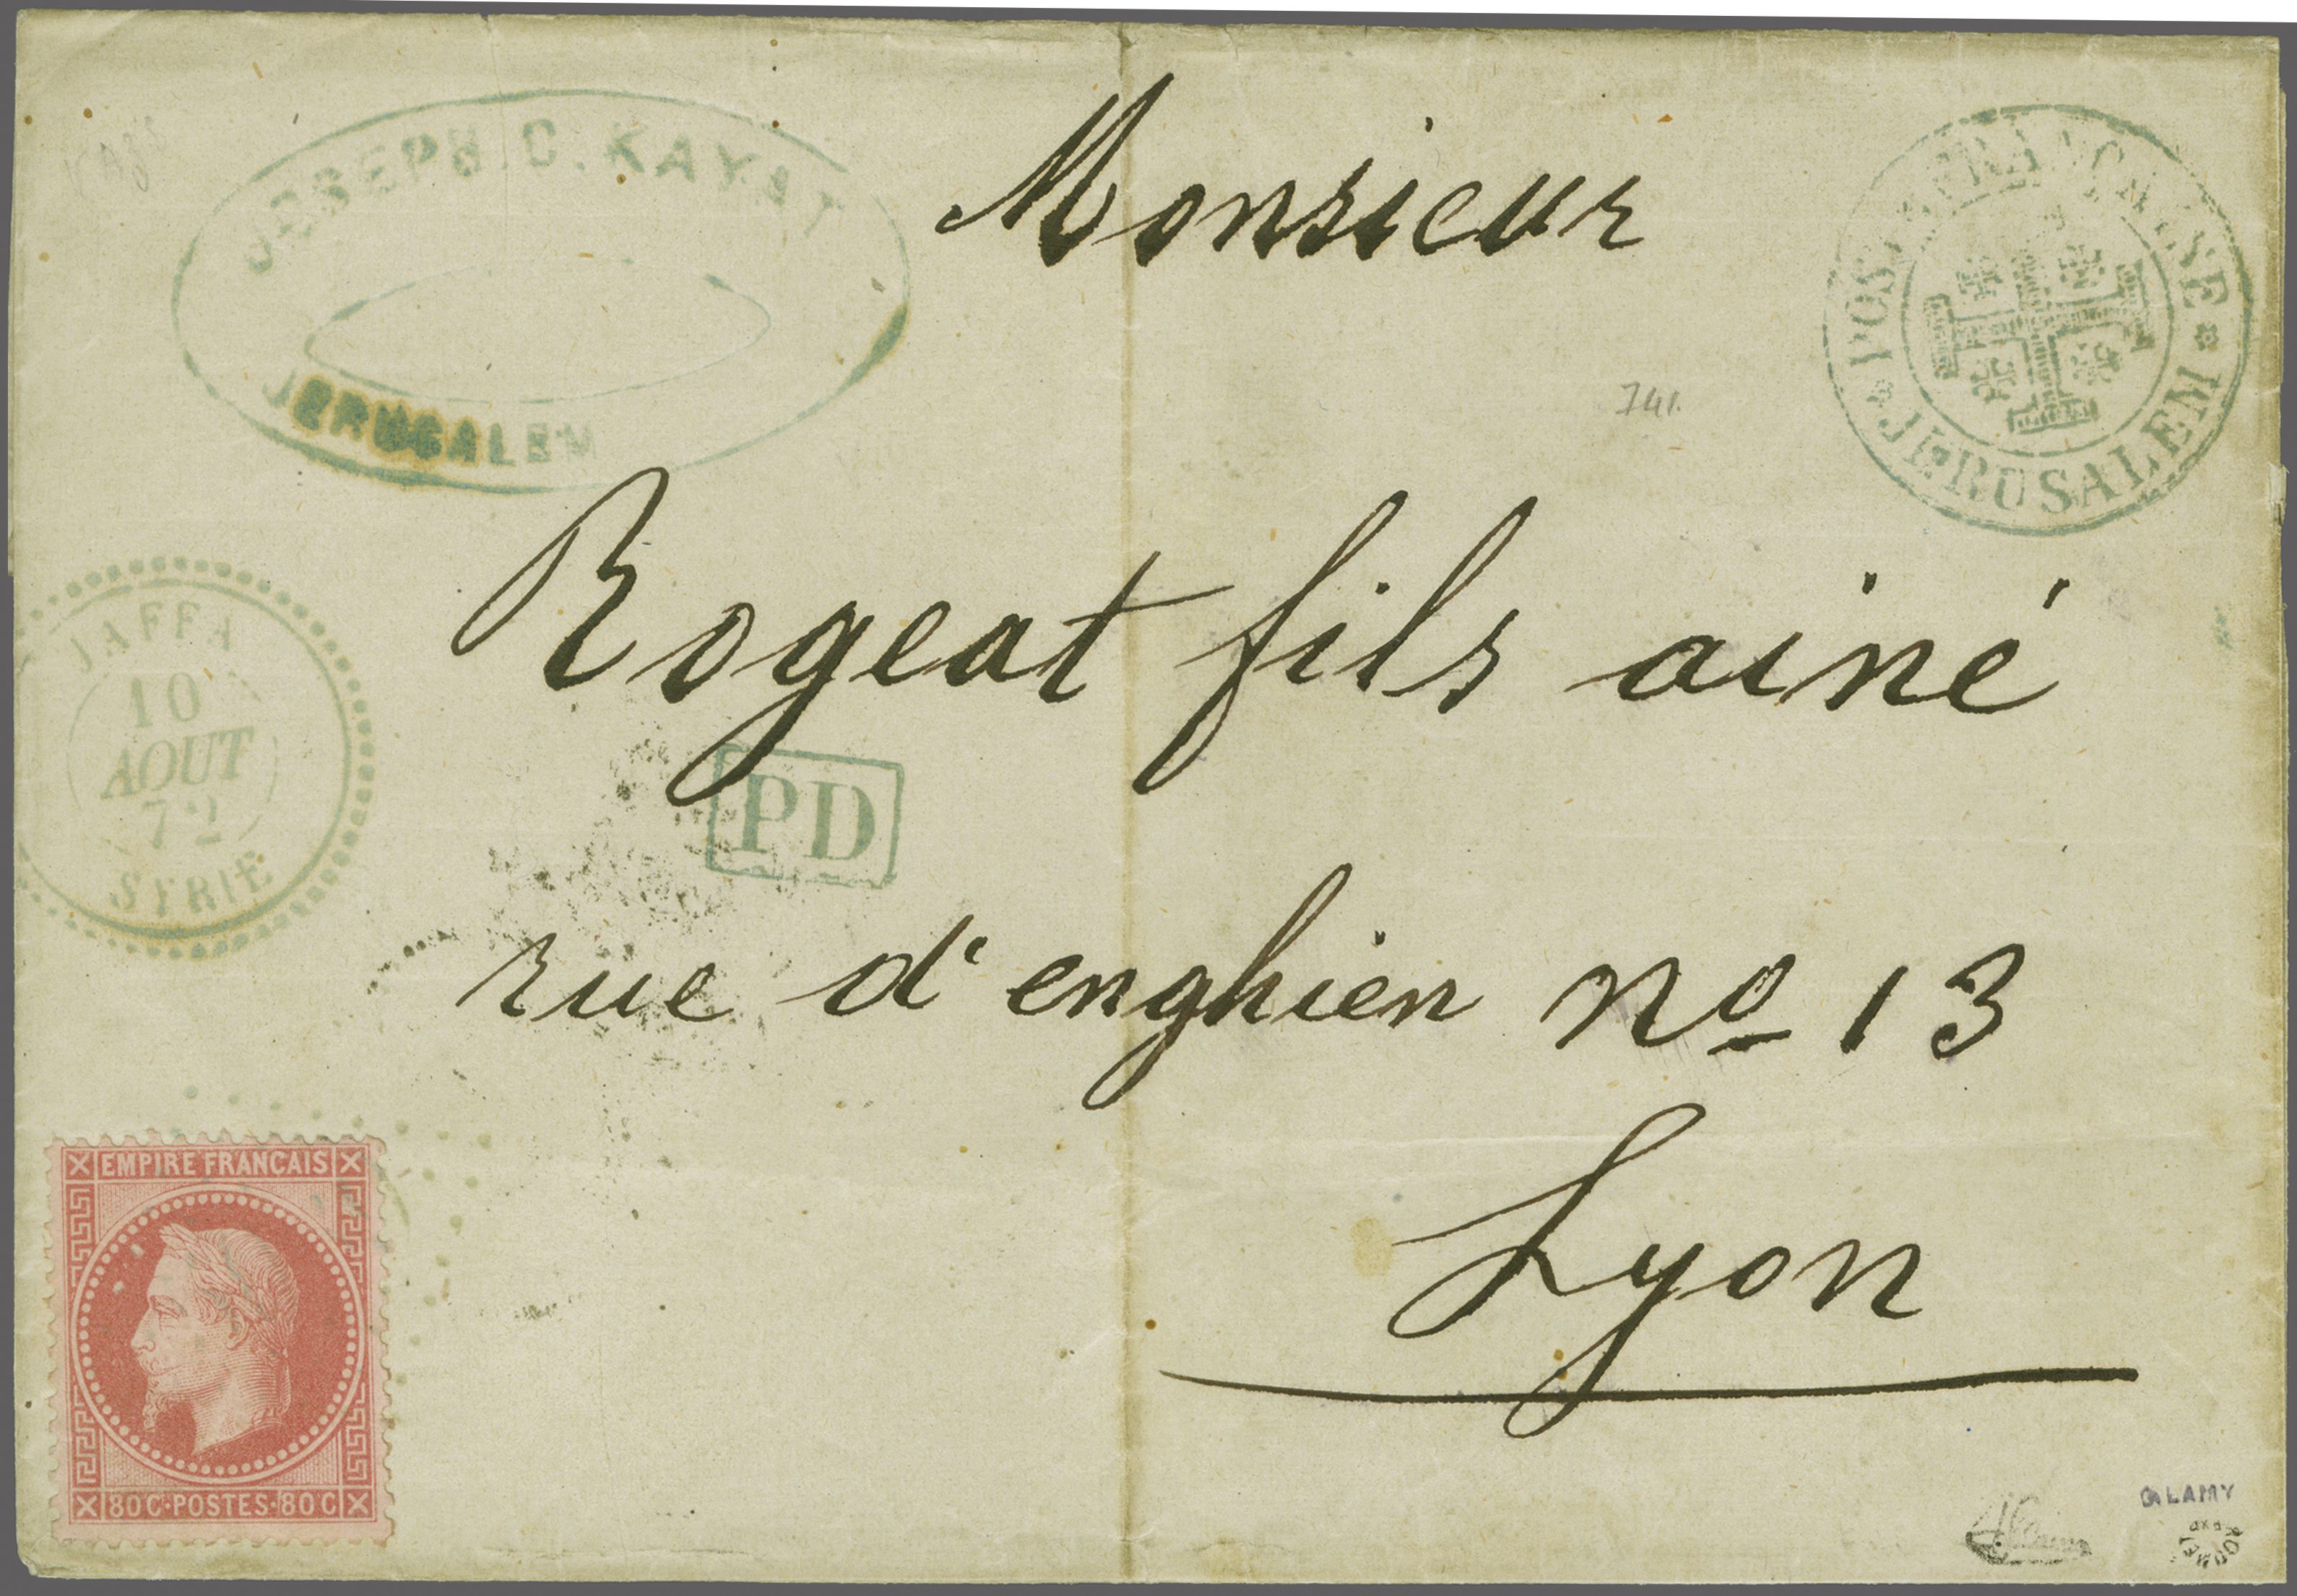 JOSEPH.C.KAYAT
JERUSALEM
Monsieur
POSTE FRANÇAISE
JERUSALEM
741.
Rogeat fils ainé
JAFFA
10
AOUT
72
SYRIE
PD
rue d'enghien No 13
Lyon
EMPIRE FRANCAIS
80C·POSTES·80C
LAMY